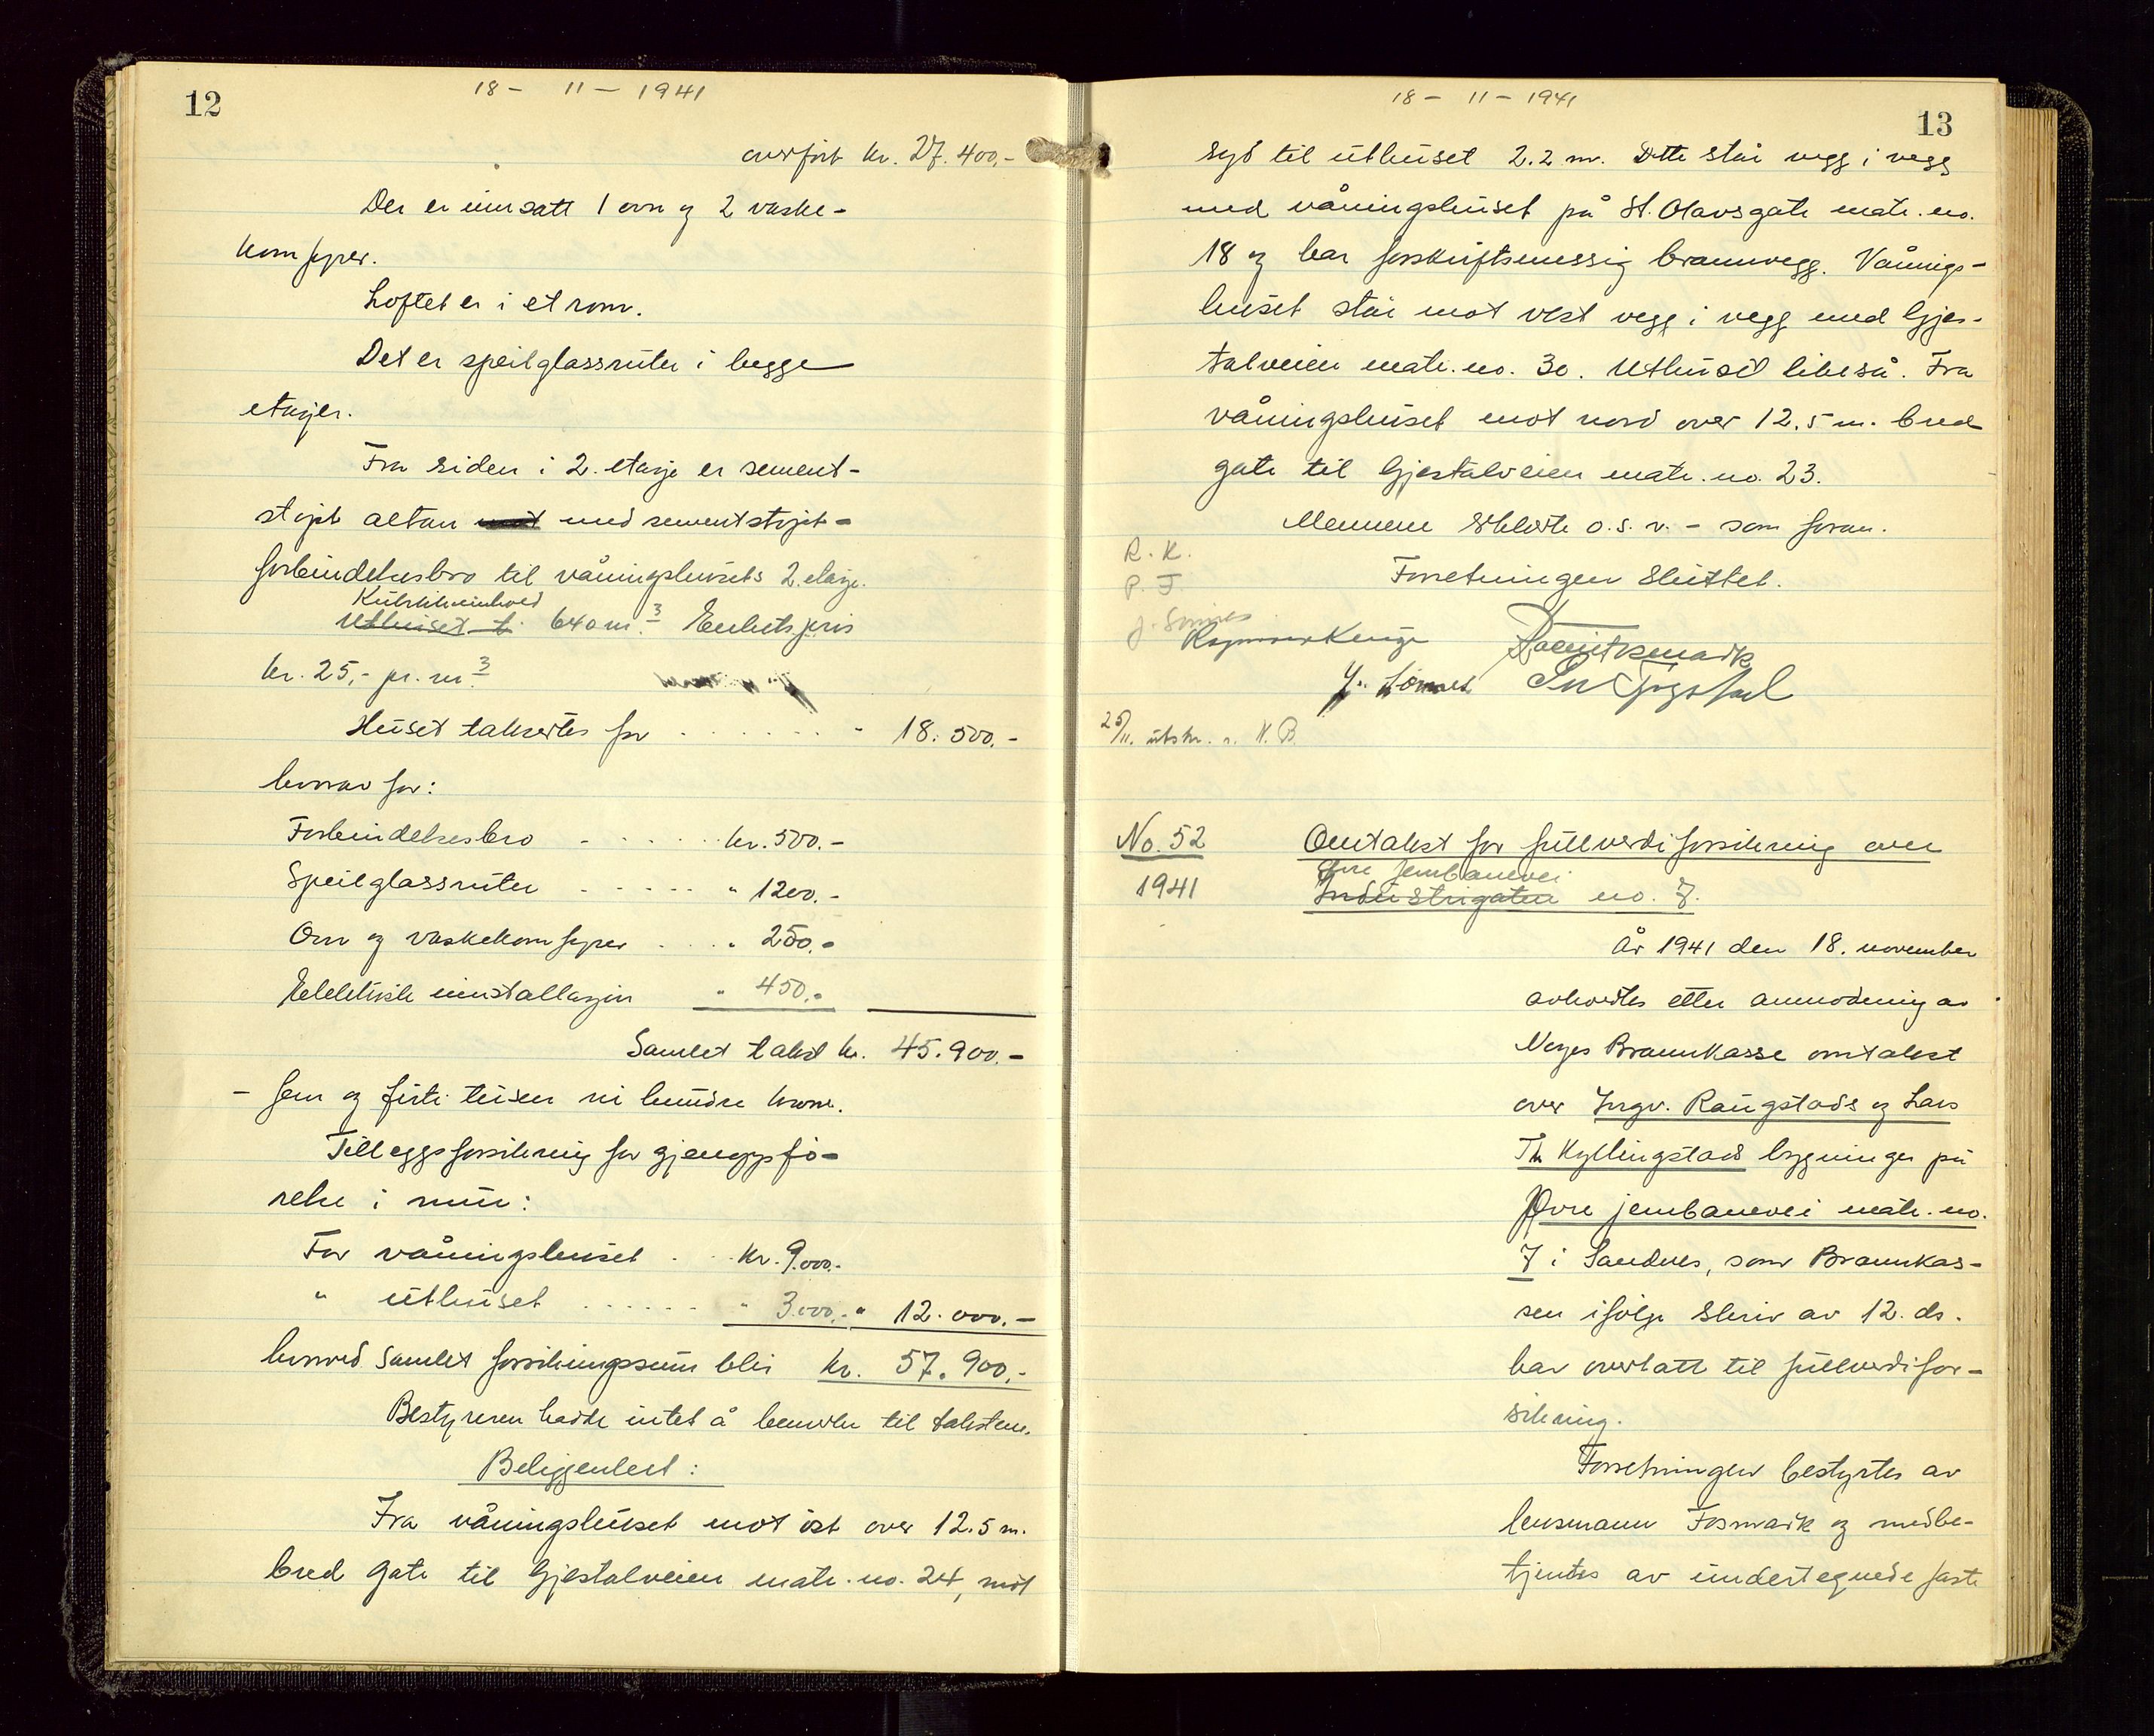 12
18 - 11 - 1941
overført kr. 27.400.-
Der er innsatt 1 ovn og 2 vaske-
komfyrer.
Loftet er i et rom.
Det er speilglassruter i begge
etasjer.
Fra siden i 2. etasje er sement-
støpt altan mot med sementstøpt-
forbindelsesbro til våningshusets 2. etasje.
Kubikkinnhold
Uthuset t. 640 m³. Enhetspris
kr. 25,- pr. m³.
Huset takseres for . . . . . . " 18.500.-
hvorav for:
Forbindelsesbro - . . . . . kr. 500.-
Speilglassruter . - . . . . " 1200.-
Ovn og vaskekomfyrer . . . . " 250.-
Elektrisk innstallasjon " 450.-
Samlet takst kr. 45.900.-
- fem og førti tusen ni hundre kroner.
Tilleggsforsikring for gjenoppfø-
relse i mur:
For våningshuset . . kr. 9.000.-
" uthuset . . . . . . " 3.000.- " 12.000.-
hvorved samlet forsikringssum blir kr. 57.900.-
Bestyreren hadde intet å bemerke til taksten.
Beliggenhet:
Fra våningshuset mot øst over 12.5 m.
bred gate til Gjestalveien matr. no. 24, mot
18 - 11 - 1941
13
syd til uthuset 2.2 m. Dette står vegg i vegg
med våningshuset på St. Olavsgate matr. no.
18 og har forskriftsmessig brannvegg. Vånings-
huset står mot vest vegg i vegg med Gjes-
talveien matr. no. 30. Uthuset likeså. Fra
våningshuset mot nord over 12.5 m. bred
gate til Gjestalveien matr. no. 23.
Mennene erklærte o.s.v. - som foran.
R. K.
P. F.
Forretningen sluttet.
J. Sømes
25/11. utskr. s. N. B.
No. 52
1941
Omtakst for fullverdiforsikring over
Øvre Jernbanevei
Industrigaten no. 7.
År 1941 den 18. november
avholdtes etter anmodning av
Norges Brannkasse omtakst
over Ingv. Raugstads og Lars
Th. Kyllingstads bygninger på
Øvre jernbanevei matr. no.
7 i Sandnes, som Brannkas-
sen ifølge skriv av 12. ds.
har overtatt til fullverdifor-
sikring.
Forretningen bestyrtes av
lensmann Fosmark og medbe-
tjentes av undertegnede faste